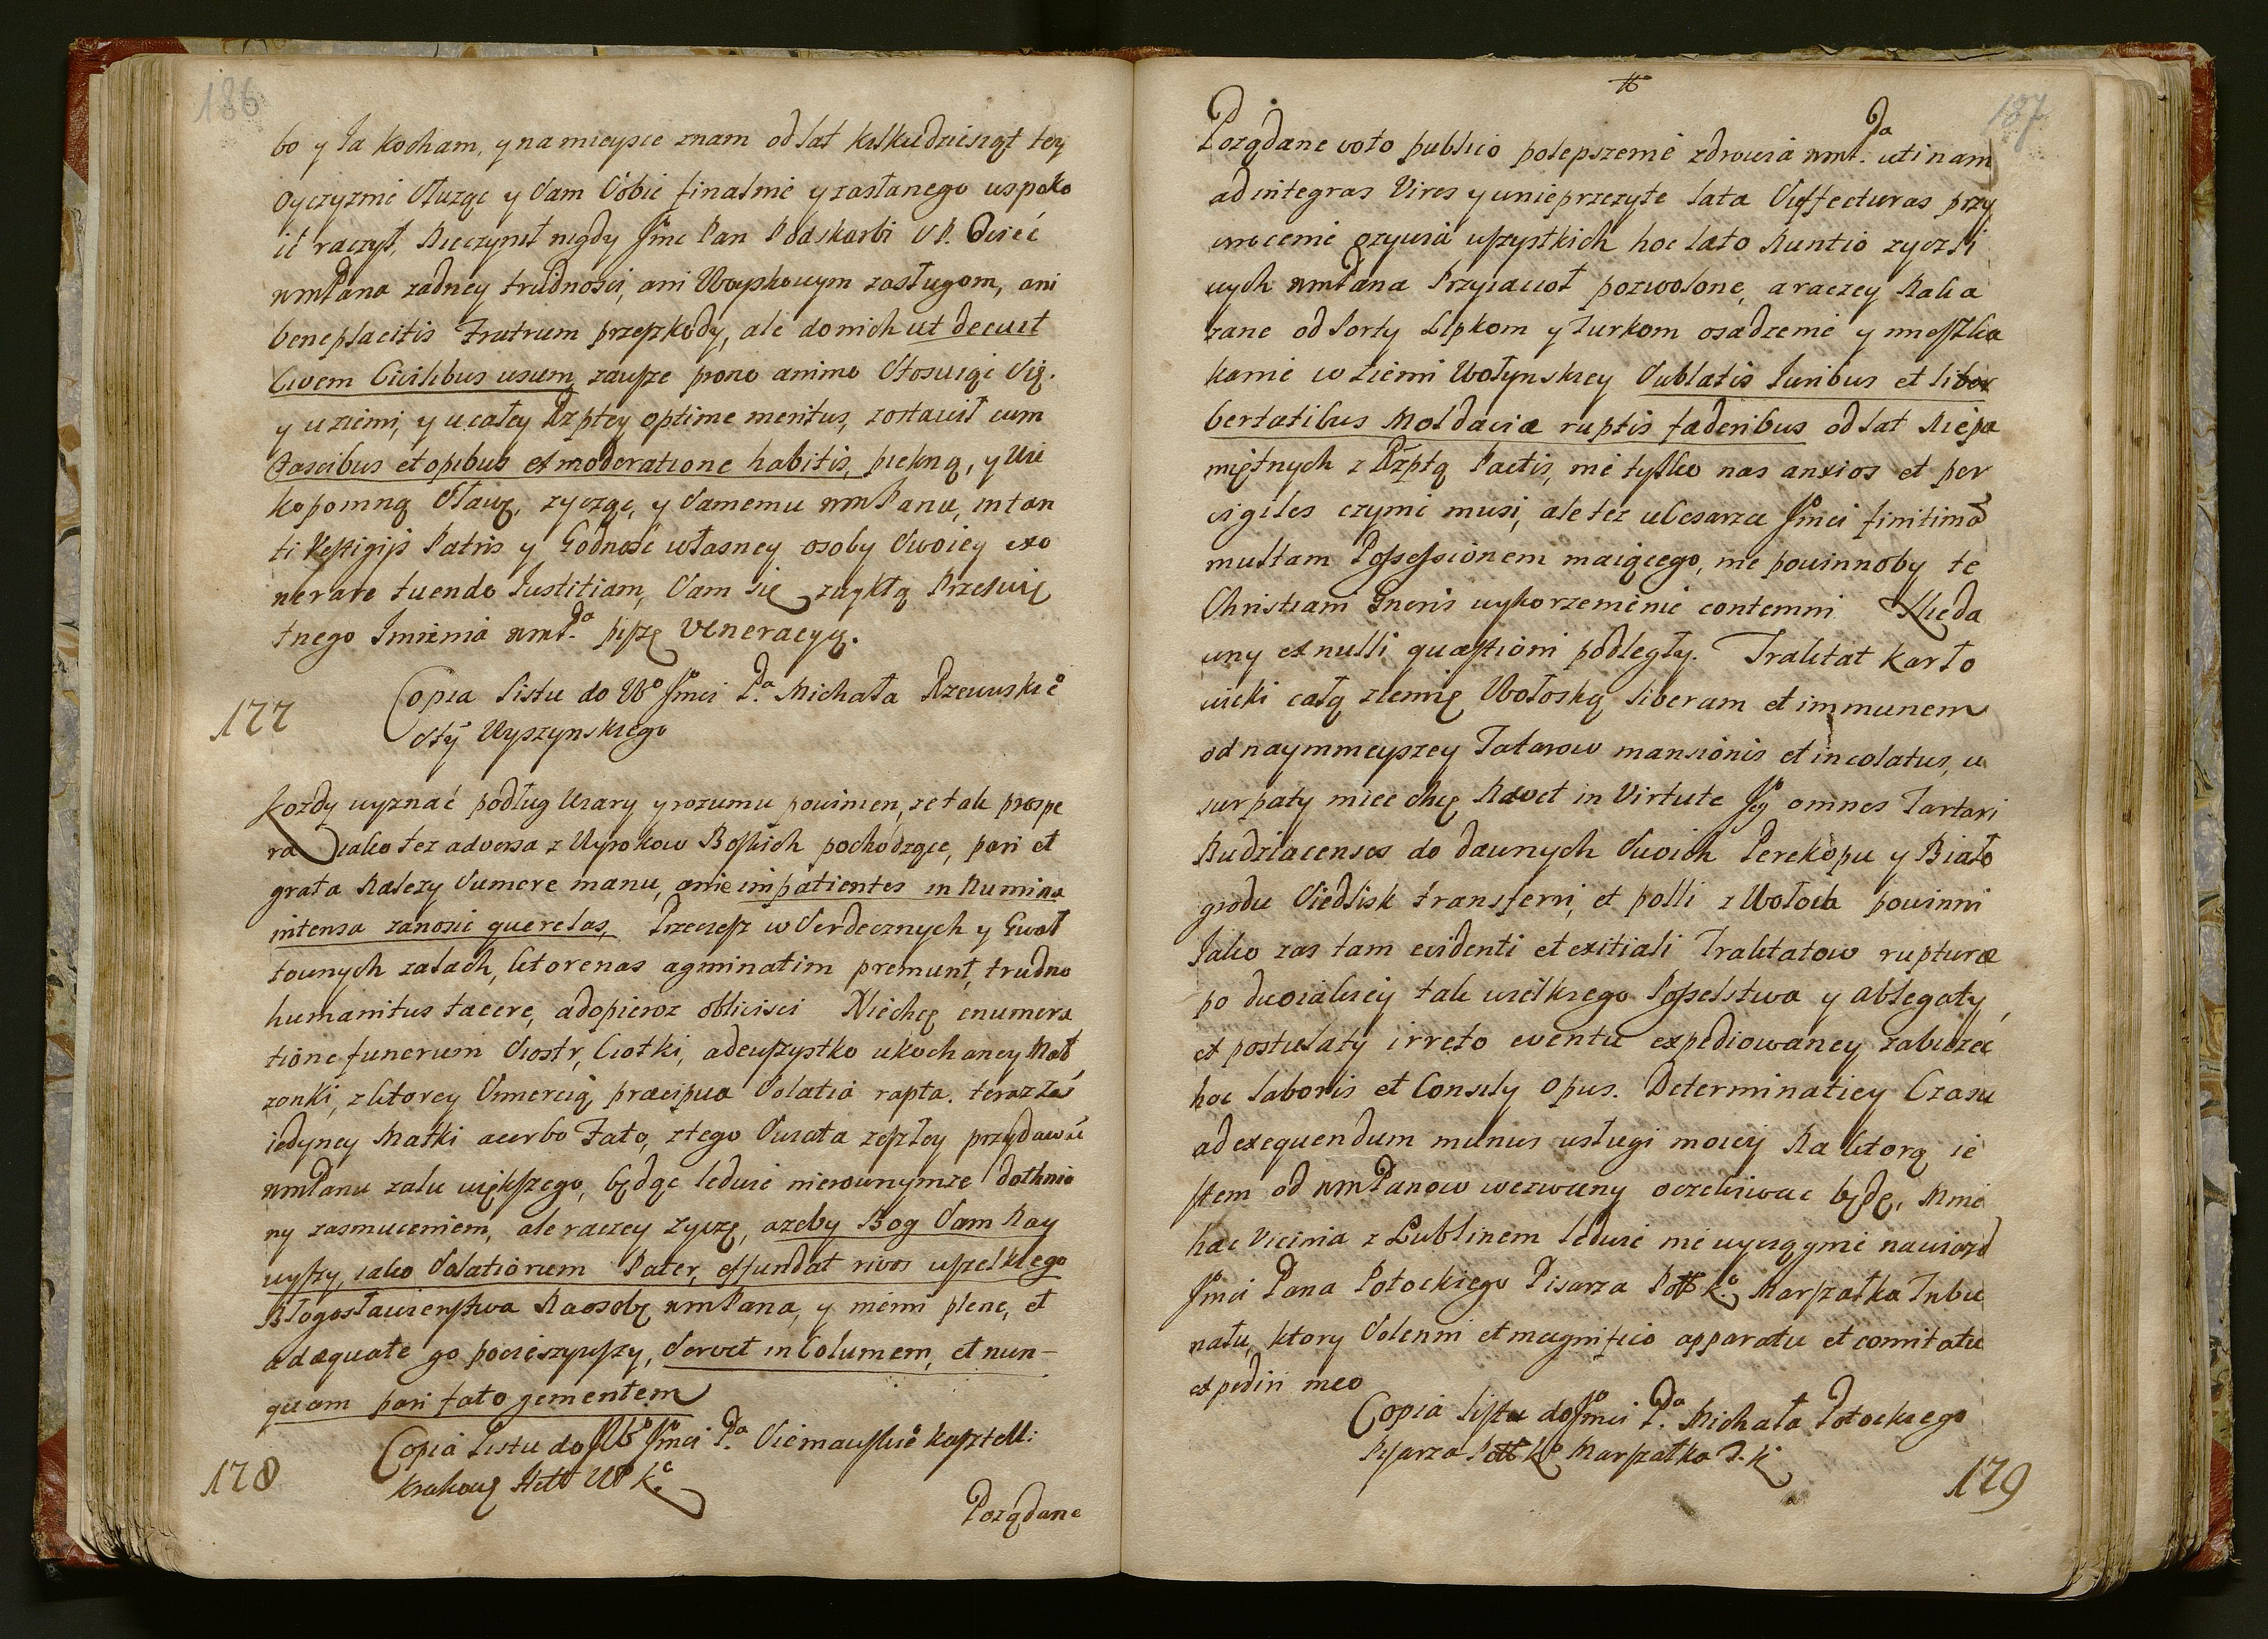 186
bo y Ja kocham, y na mieysce znam od lat kilkudziesiąt tey
Oyczyznie służąc y Sam Sobie finalnie y zasłanego uspoko
ić raczył, nieczynił nigdy Jmc Pan Podskarbi
wmPana zadney trudności, ani Woyskowym zasługom, ani
beneplacitis Fratrum przeszkody, ale do nich ut decuit
Civem Civilibus usum, zawsze prono animo Stosuiąc Się.
y u ziemi, y u całey Rzptey optime meritus, zostawił cum
Fascibus et opibus et moderatione habitis, piękną, y Wie
kopomną Sławę, zycząc, y Samemu wmPanu, in tan
ti Vestigijs Patris y Godność własney osoby Swoiey exo
nerare tuendo Justitiam, Sam się zwykłą Przeswię
tnego Imienia wmPa. piszę Veneracyą.
177
Copia Listu do Wo Jmci Pa. Michała Rzewuskieo
Stty Wyszynskiego
Kozdy wyznać podług Wiary y rozumu powinien, ze tak prospe
ra iako tez adversa z Wyrokow Boskich pochodzące, pari et
grata nalezy Sumere manu, anie impatientes in Numina
intensa zanosic querelas, Przeciesz w Serdecznych y Gwał
townych zalach, ktore nas agminatim premunt, trudno
humanitus tacere, a dopieroz oblivisci Niechcę enumera
tione funerum Siostr, Ciotki, a dewszystko ukochaney Mał
zonki, z ktorey Smiercią praecipua Solatia rapta. teraz zaś
iedyney Matki acerbo Fato, z tego Swiata zeszłey przydawać
wmPanu zalu większego, będąc ledwie nierownymze dotknio
ny zasmuceniem, ale raczey zyczę, azeby Bog Sam Nay
wyszy, iako Solationum Pater, effundat rivos wszelkiego
Błogosławienstwa Na osobę wmPana, y niemi plene, et
adæquate go pocieszywszy, Servet incolumem, et nun-
quam pari fato gementem
178
Copia Listu do JWo Jmci Pa. Sieniawskieo Kasztell:
Krakowg Hett WP Ko
Poządane
187
Poządane voto publico polepszenie zdrowia wmPa. utinam
ad integras Vires y unieprzezyte lata Suffecturas przy
wrocenie ozywia wszystkich hoc lato Nuntio zyczli
wych wmPana Przyiacioł pozwolone, araczey Naka
zane od Porty Lipkom y Turkom osadzenie y mieszka
kanie w ziemi Wołynskiey Sublatis Juribus et liber
bertatibus Moldaviæ ruptis fæderibus od lat Niepa
miętnych z Rzptą Pactis, nie tylko nas anxios et per
vigiles czynic musi, ale tez u Cesarza Jmci finitimo
multam Possessionem maiącego, nie powinnoby te
Christiani Gneris wykorzenienie contemni Niedda
wny et nulli quæstioni podległy. Traktat Karło
wicki całą ziemię Wołoską liberam et immunem
od naymnieyszey Tatarow mansionis et incolatus, u
surpaty miec chcę Navet in Virtute Jego omnes Tartari
Budziacenses do dawnych Swoich Perekopu y Biało
grodu Siedlisk transferri, et pelli z Wołoch powinni
Jako zas tam evidenti et exitiali Traktatow rupturæ
po dwoiakiey tak wielkiego Posselstwa y ablegaty,
et postulaty irreto eventu expediowaney zabiezec
hoc laboris et Consily Opus. Determinatiey Czasu
ad exequendum munus usługi moiey Na ktorą ie
stem od wmPanow wezwany oczekiwac będę, Mnie
hæc Vicinia z Lublinem ledwie nie wyciągnie nawiazd
Jmci Pana Potockiego Pisarza Poll Ko. Marszałka Trybu
nału, ktory Solenni et magnifico apparatu et comitatu
expediri meo
Copia listu do Jmci Pa. Michała Potockiego
Pisarza Poll Ko Marszałka T. K
179